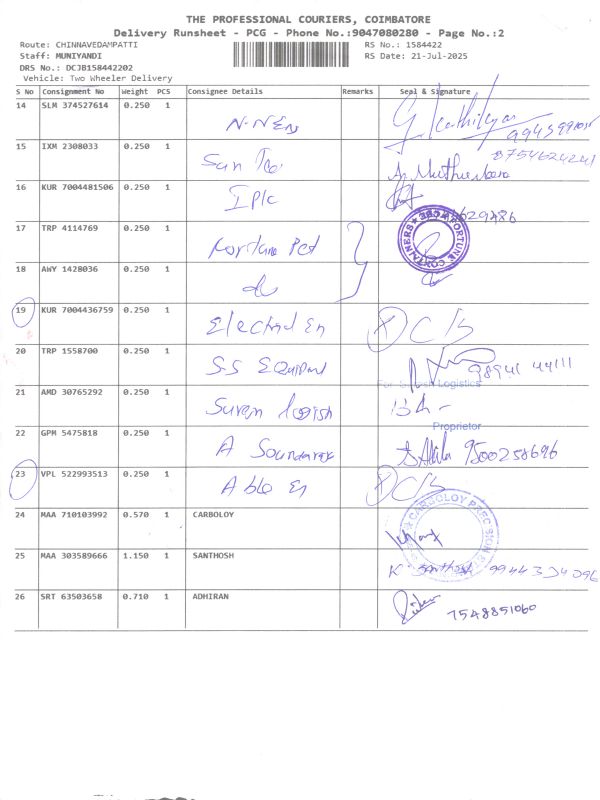 THE PROFESSIONAL COURIERS, COIMBATORE
Delivery Runsheet - PCG - Phone No.:9047080280 - Page No.:2
Route: CHINNAVEDAMPATTI RS No.: 1584422
Staff: MUNIYANDI RS Date: 21-Jul-2025
DRS No.: DCJB158442202
Vehicle: Two Wheeler Delivery
S No Consignment No Weight PCS Consignee Details Remarks Seal & Signature
14 SLM 374527614 0.250 1 N-NEn
15 IXM 2308033 0.250 1 Sun 8754624241
16 KUR 7004481506 0.250 1 IPlc
17 TRP 4114769 0.250 1 FORTUNE CONTAINERS
18 AWY 1428036 0.250 1 do
19 KUR 7004436759 0.250 1 Electrical En C/S
20 TRP 1558700 0.250 1 S-S Equipmt 98941 44111
For Logistics
21 AMD 30765292 0.250 1 Suresh
Proprietor
22 GPM 5475818 0.250 1 A Soundarya 9500258696
23 VPL 522993513 0.250 1 Able En C/S
24 MAA 710103992 0.570 1 CARBOLOY CARBOLOY PRECISION
25 MAA 303589666 1.150 1 SANTHOSH K. Santhosh 9944334096
26 SRT 63503658 0.710 1 ADHIRAN 7548851060